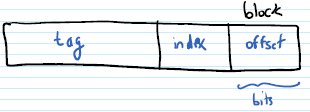 block
tag index offset
bits